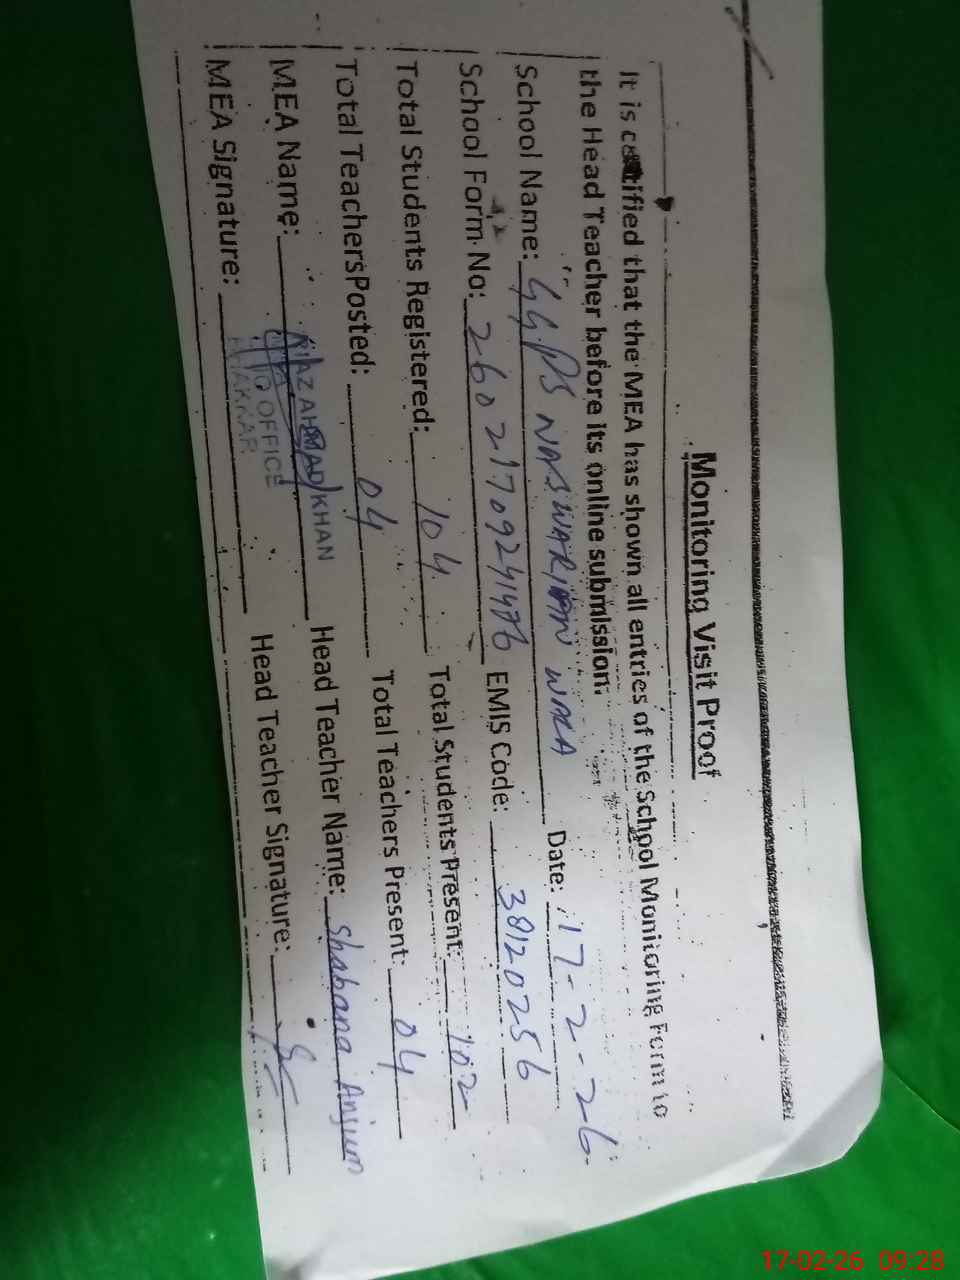 Monitoring Visit Proof
It is certified that the MEA has shown all entries of the School Monitoring Form to
the Head Teacher before its online submission.
School Name: GGPS NASWARIAN WALA Date: 17-2-26
School Form No: 26021709241476 EMIS Code: 38120256
Total Students Registered: 104 Total Students Present: 102
Total Teachers Posted: 04 Total Teachers Present: 04
MEA Name: NIAZ AHMAD KHAN Head Teacher Name: Shabana Anjum
MEA Signature: OFFICE Head Teacher Signature:
17-02-26 09:28